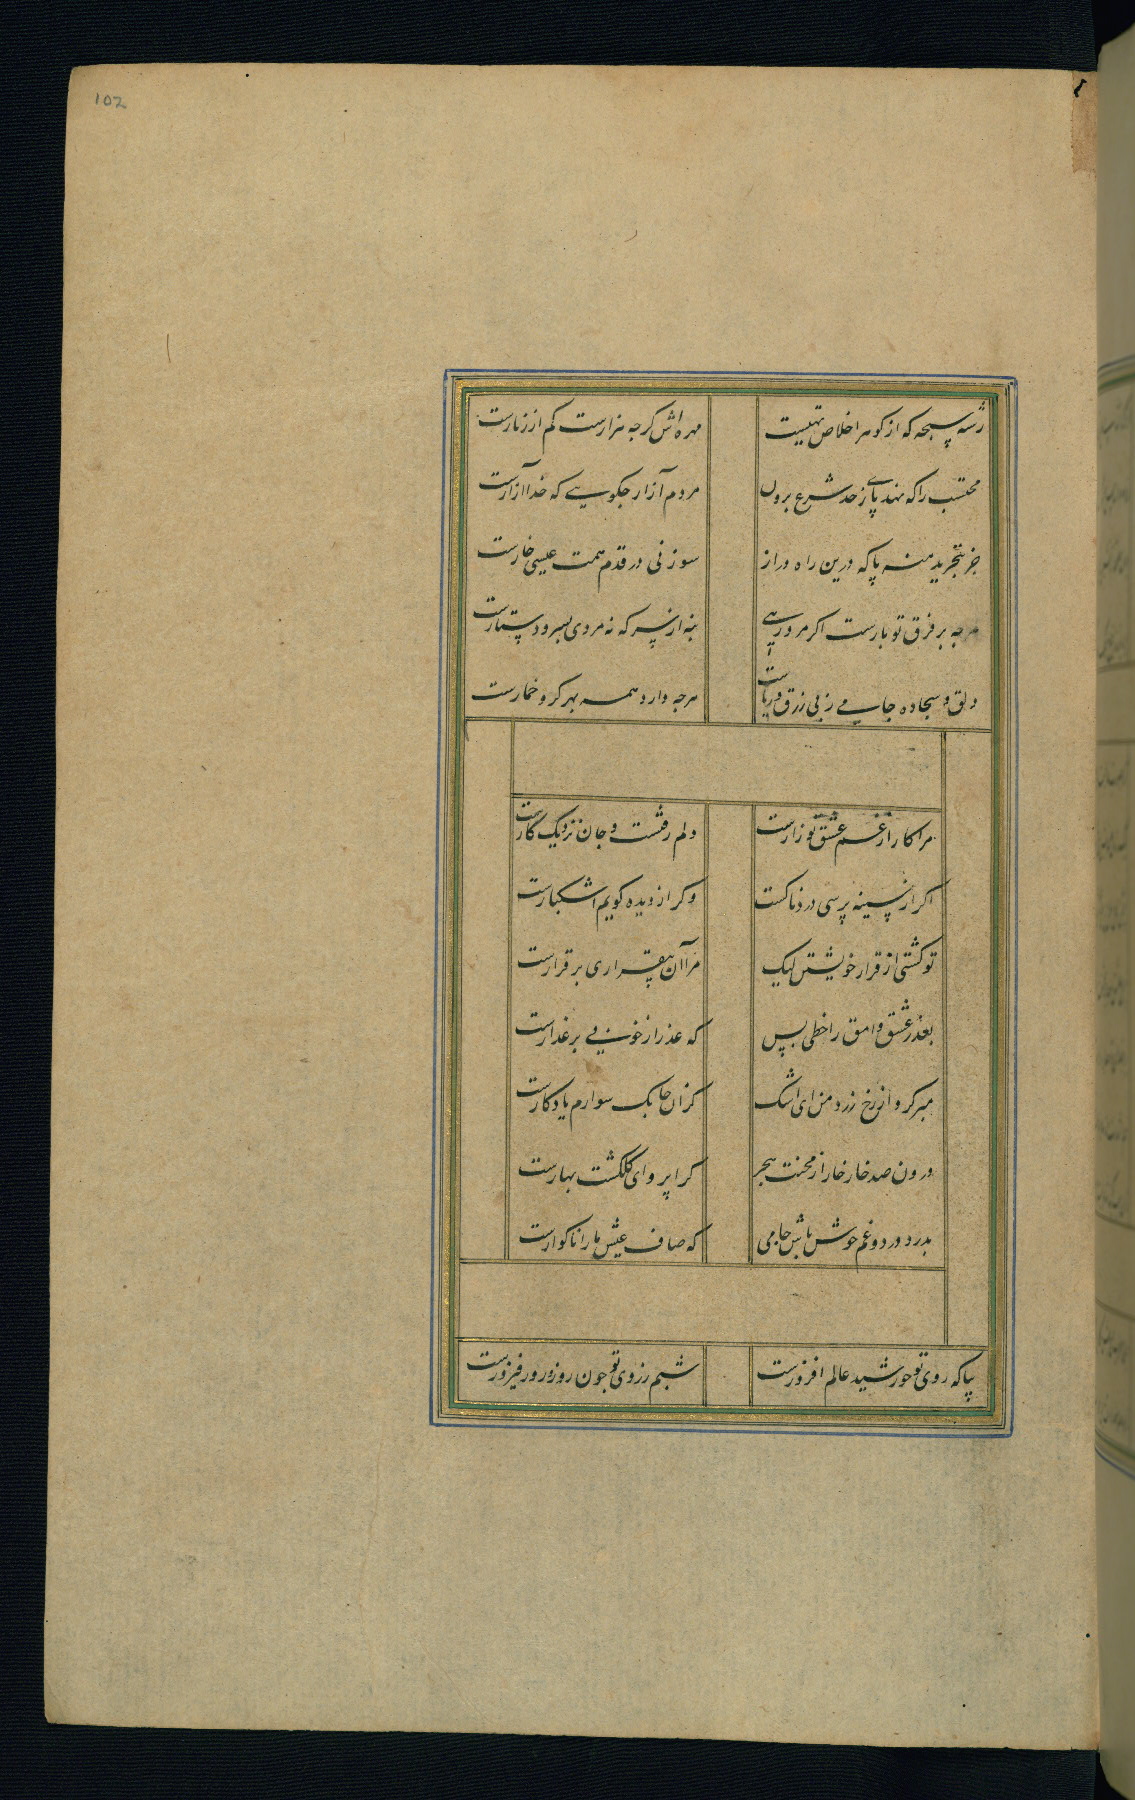 102
رشته سبحه که از کوهر اخلاص تهیست مهره اش کرچه هزارست کم از زنارست
محتسب را که نهد پای ز حد شرع برون مردم آزار چکویی که خدا آزارست
جز بتجرید منه پا که درین راه دراز سوزنی در قدم همت عیسی خارست
هرچه بر فرق تو بارست اکر مرد رهی بنه از سر که نه مردی بسر و دستارست
دلق و سجاده جامی ز پی زرق و ریاست هرچه دارد همه بهر کرو خمارست
مرا کار از غم عشق تو زارست دلم رفتست و جان نزدیک کارست
اکر از سینه پرسی دردناکست وکر از دیده کویم اشکبارست
تو کشتی از قرار خویشتن لیک مرا آن بیقراری برقرارست
بعذر عشق وامق را خطی بس که عذرا از خون وی بر عذارست
مبر کرد از رخ زرد من ای اشک کزان چابک سوارم یادکارست
درون صد خار خار از محنت هجر کرا پروای کلکشت بهارست
بدرد درد و غم خوش باش جامی که صاف عیش ما را ناکوارست
بیا که روی تو خورشید عالم افروزست شبم ز روی تو چون روز و روز فیروزست